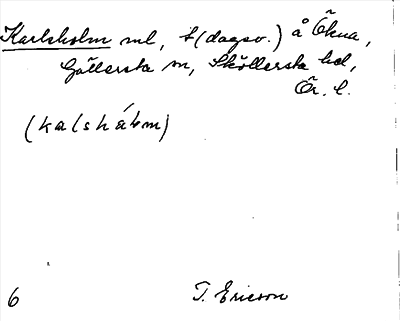 Karlsholm ml, t (dagsv.) å Ökna,
Gällersta sn, Sköllersta hd,
Ör. l.
(kalshålm)
6 T. Ericson